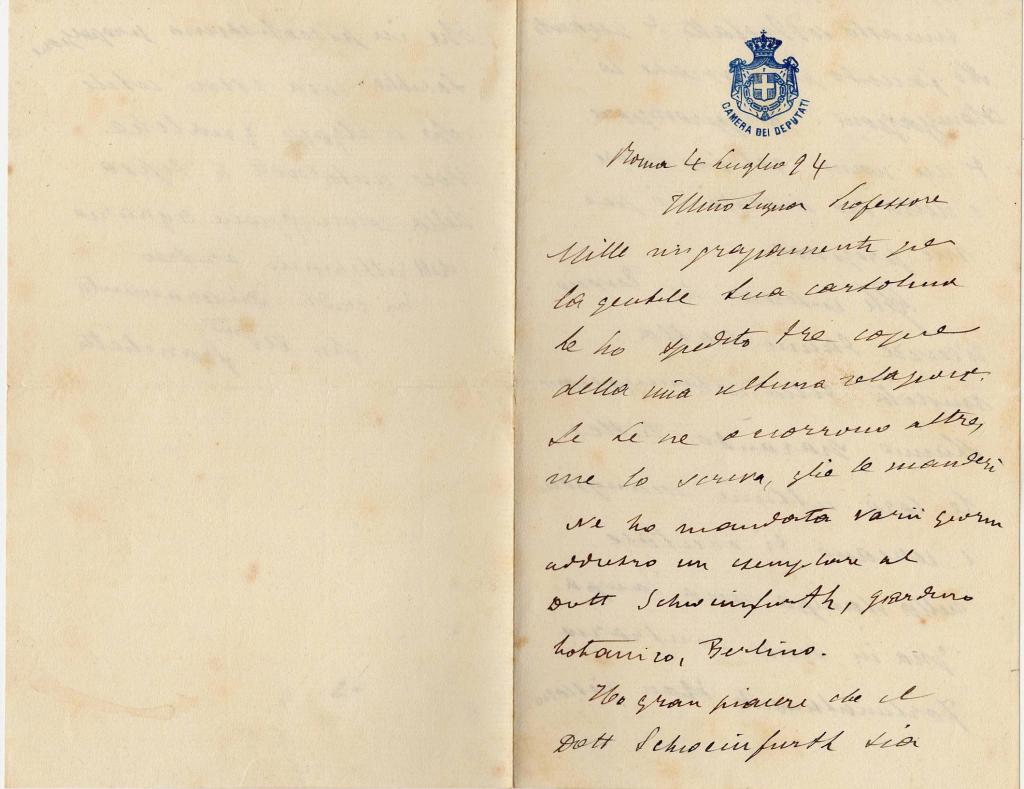 CAMERA DEI DEPUTATI
Roma 4 Luglio 94
Illmo Signor Professore
Mille ringraziamenti per
la gentile sua cartolina
le ho spedito tre copie
della mia ultima relazione.
Se Le ne occorrono altre,
me lo scriva, glie le manderò
Ne ho mandata varii giorni
addietro un esemplare al
Dott Schweinfurth, giardino
botanico, Berlino.
Ho gran piacere che il
Dott Schweinfurth sia